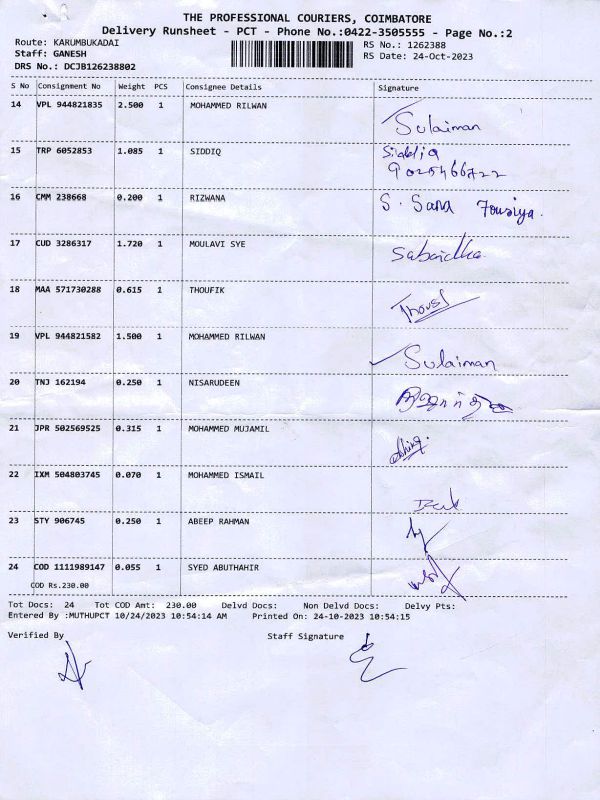 THE PROFESSIONAL COURIERS, COIMBATORE
Delivery Runsheet - PCT - Phone No.:0422-3505555 - Page No.:2
Route: KARUMBUKADAI RS No.: 1262388
Staff: GANESH RS Date: 24-Oct-2023
DRS No.: DCJB126238802
S No Consignment No Weight PCS Consignee Details Signature
14 VPL 944821835 2.500 1 MOHAMMED RILWAN
Sulaiman
15 TRP 6052853 1.085 1 SIDDIQ Siddiq
9025466722
16 CMM 238668 0.200 1 RIZWANA S. Sana Fousiya.
17 CUD 3286317 1.720 1 MOULAVI SYE
18 MAA 571730288 0.615 1 THOUFIK
19 VPL 944821582 1.500 1 MOHAMMED RILWAN
Sulaiman
20 TNJ 162194 0.250 1 NISARUDEEN
21 JPR 502569525 0.315 1 MOHAMMED MUJAMIL
22 IXM 504803745 0.070 1 MOHAMMED ISMAIL
23 STY 906745 0.250 1 ABEEP RAHMAN
24 COD 1111989147 0.055 1 SYED ABUTHAHIR
COD Rs.230.00
Tot Docs: 24 Tot COD Amt: 230.00 Delvd Docs: Non Delvd Docs: Delvy Pts:
Entered By :MUTHUPCT 10/24/2023 10:54:14 AM Printed On: 24-10-2023 10:54:15
Verified By Staff Signature